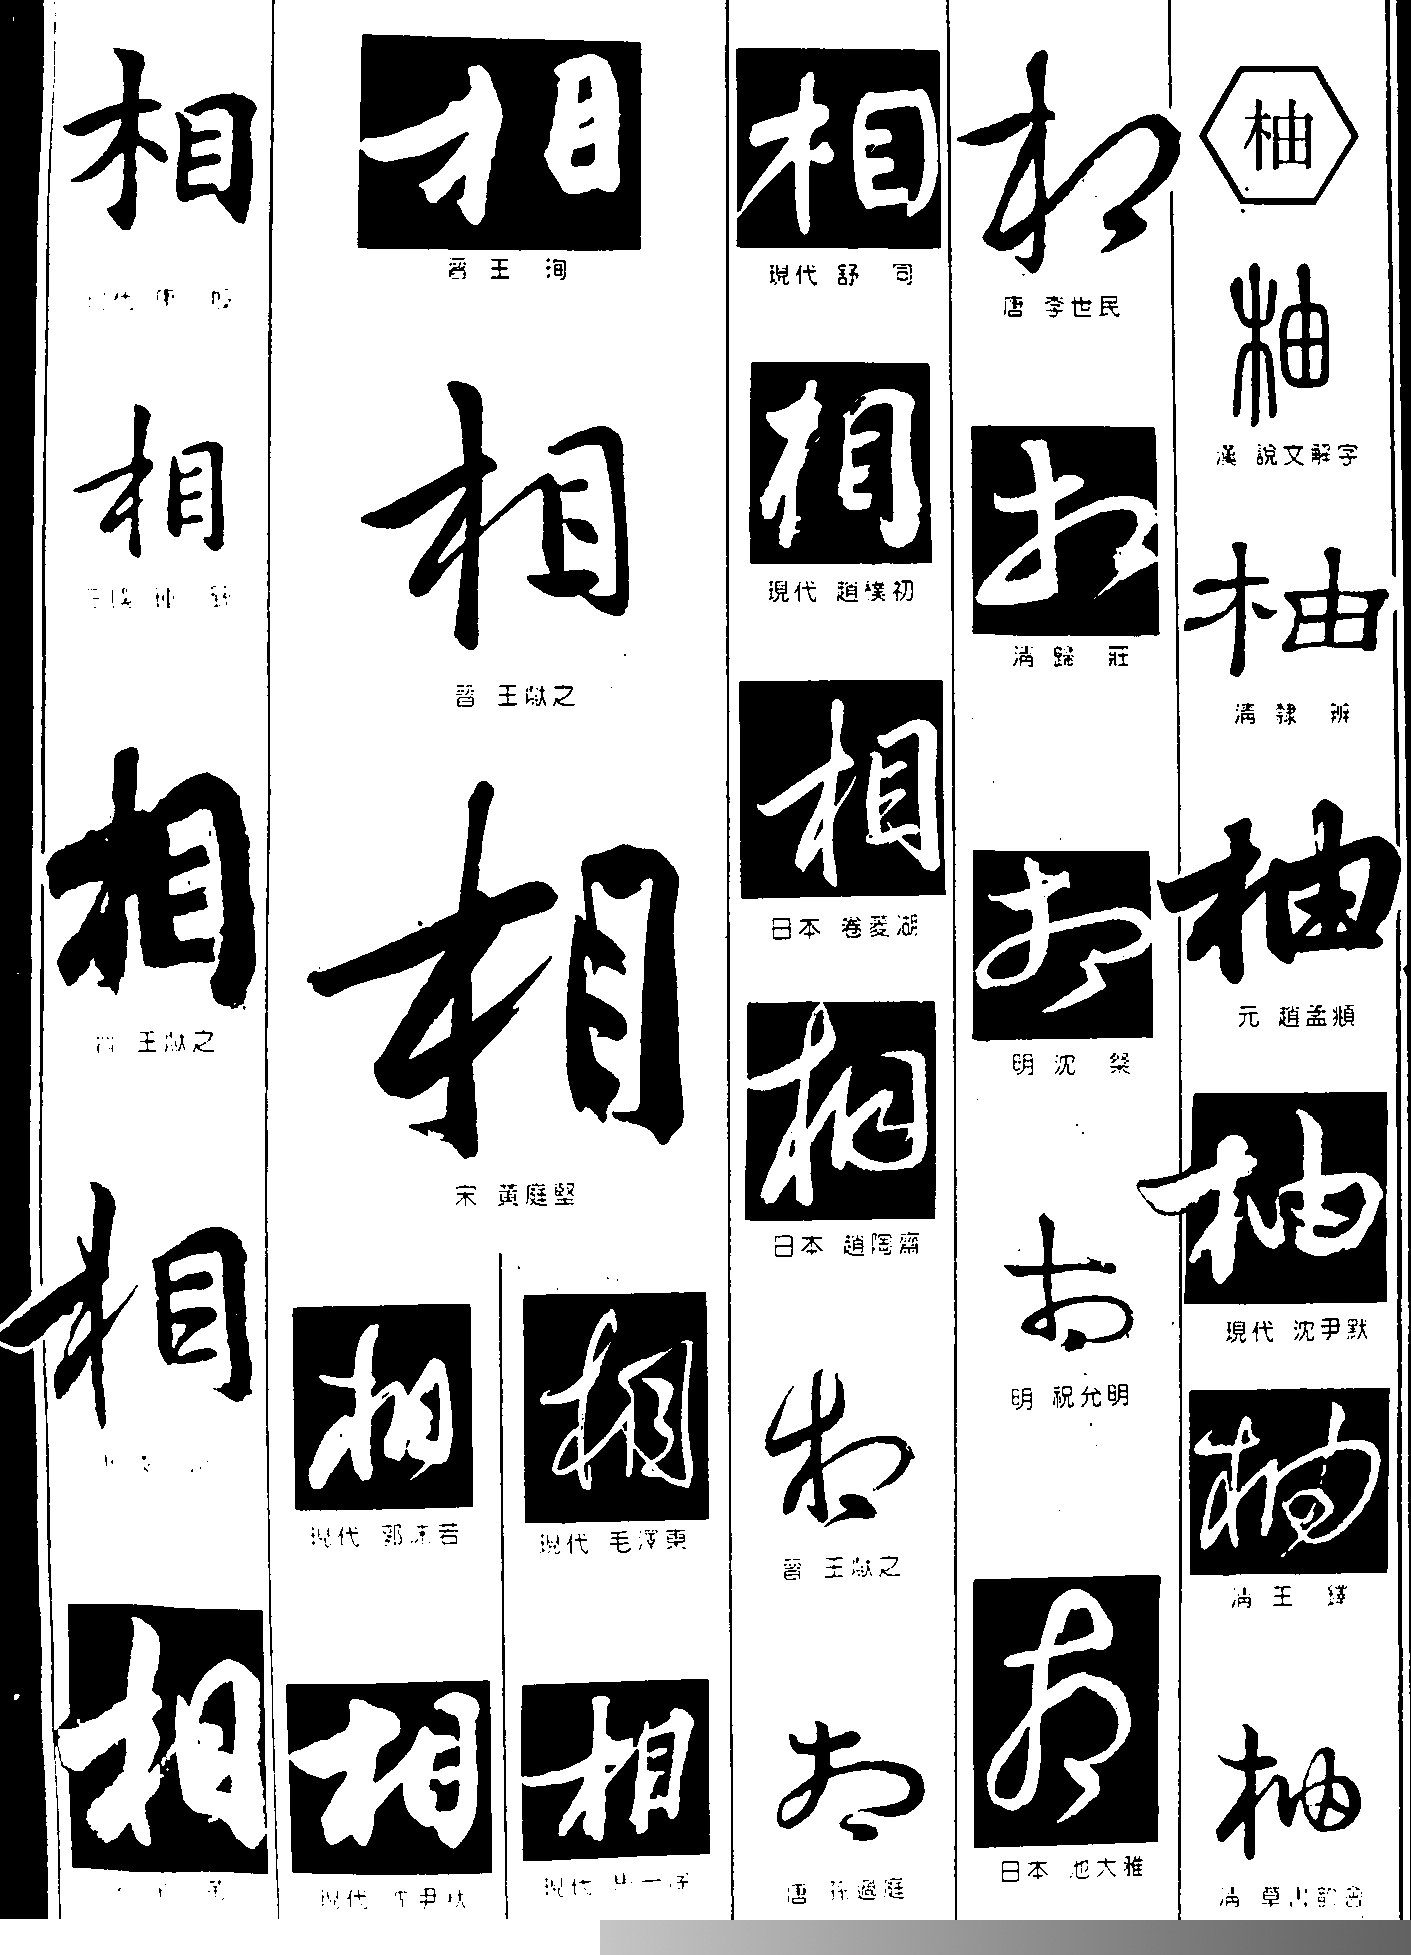 柚
柚
漢 說文解字
柚
清 隸 辨
柚
元 趙孟頫
柚
現代 沈尹默
柚
清 王 鐸
柚
清 草書韻會
相
唐 李世民
相
清 歸 莊
相
明 沈 粲
相
明 祝允明
相
日本 池大雅
相
現代 舒 同
相
現代 趙樸初
相
日本 卷菱湖
相
日本 趙陶齋
相
晉 王獻之
相
唐 孫過庭
相
晉 王 洵
相
晉 王獻之
相
宋 黃庭堅
相
現代 毛澤東
相
現代
相
現代 郭沫若
相
現代 沈尹默
相
現代
相
相
晉 王獻之
相
相